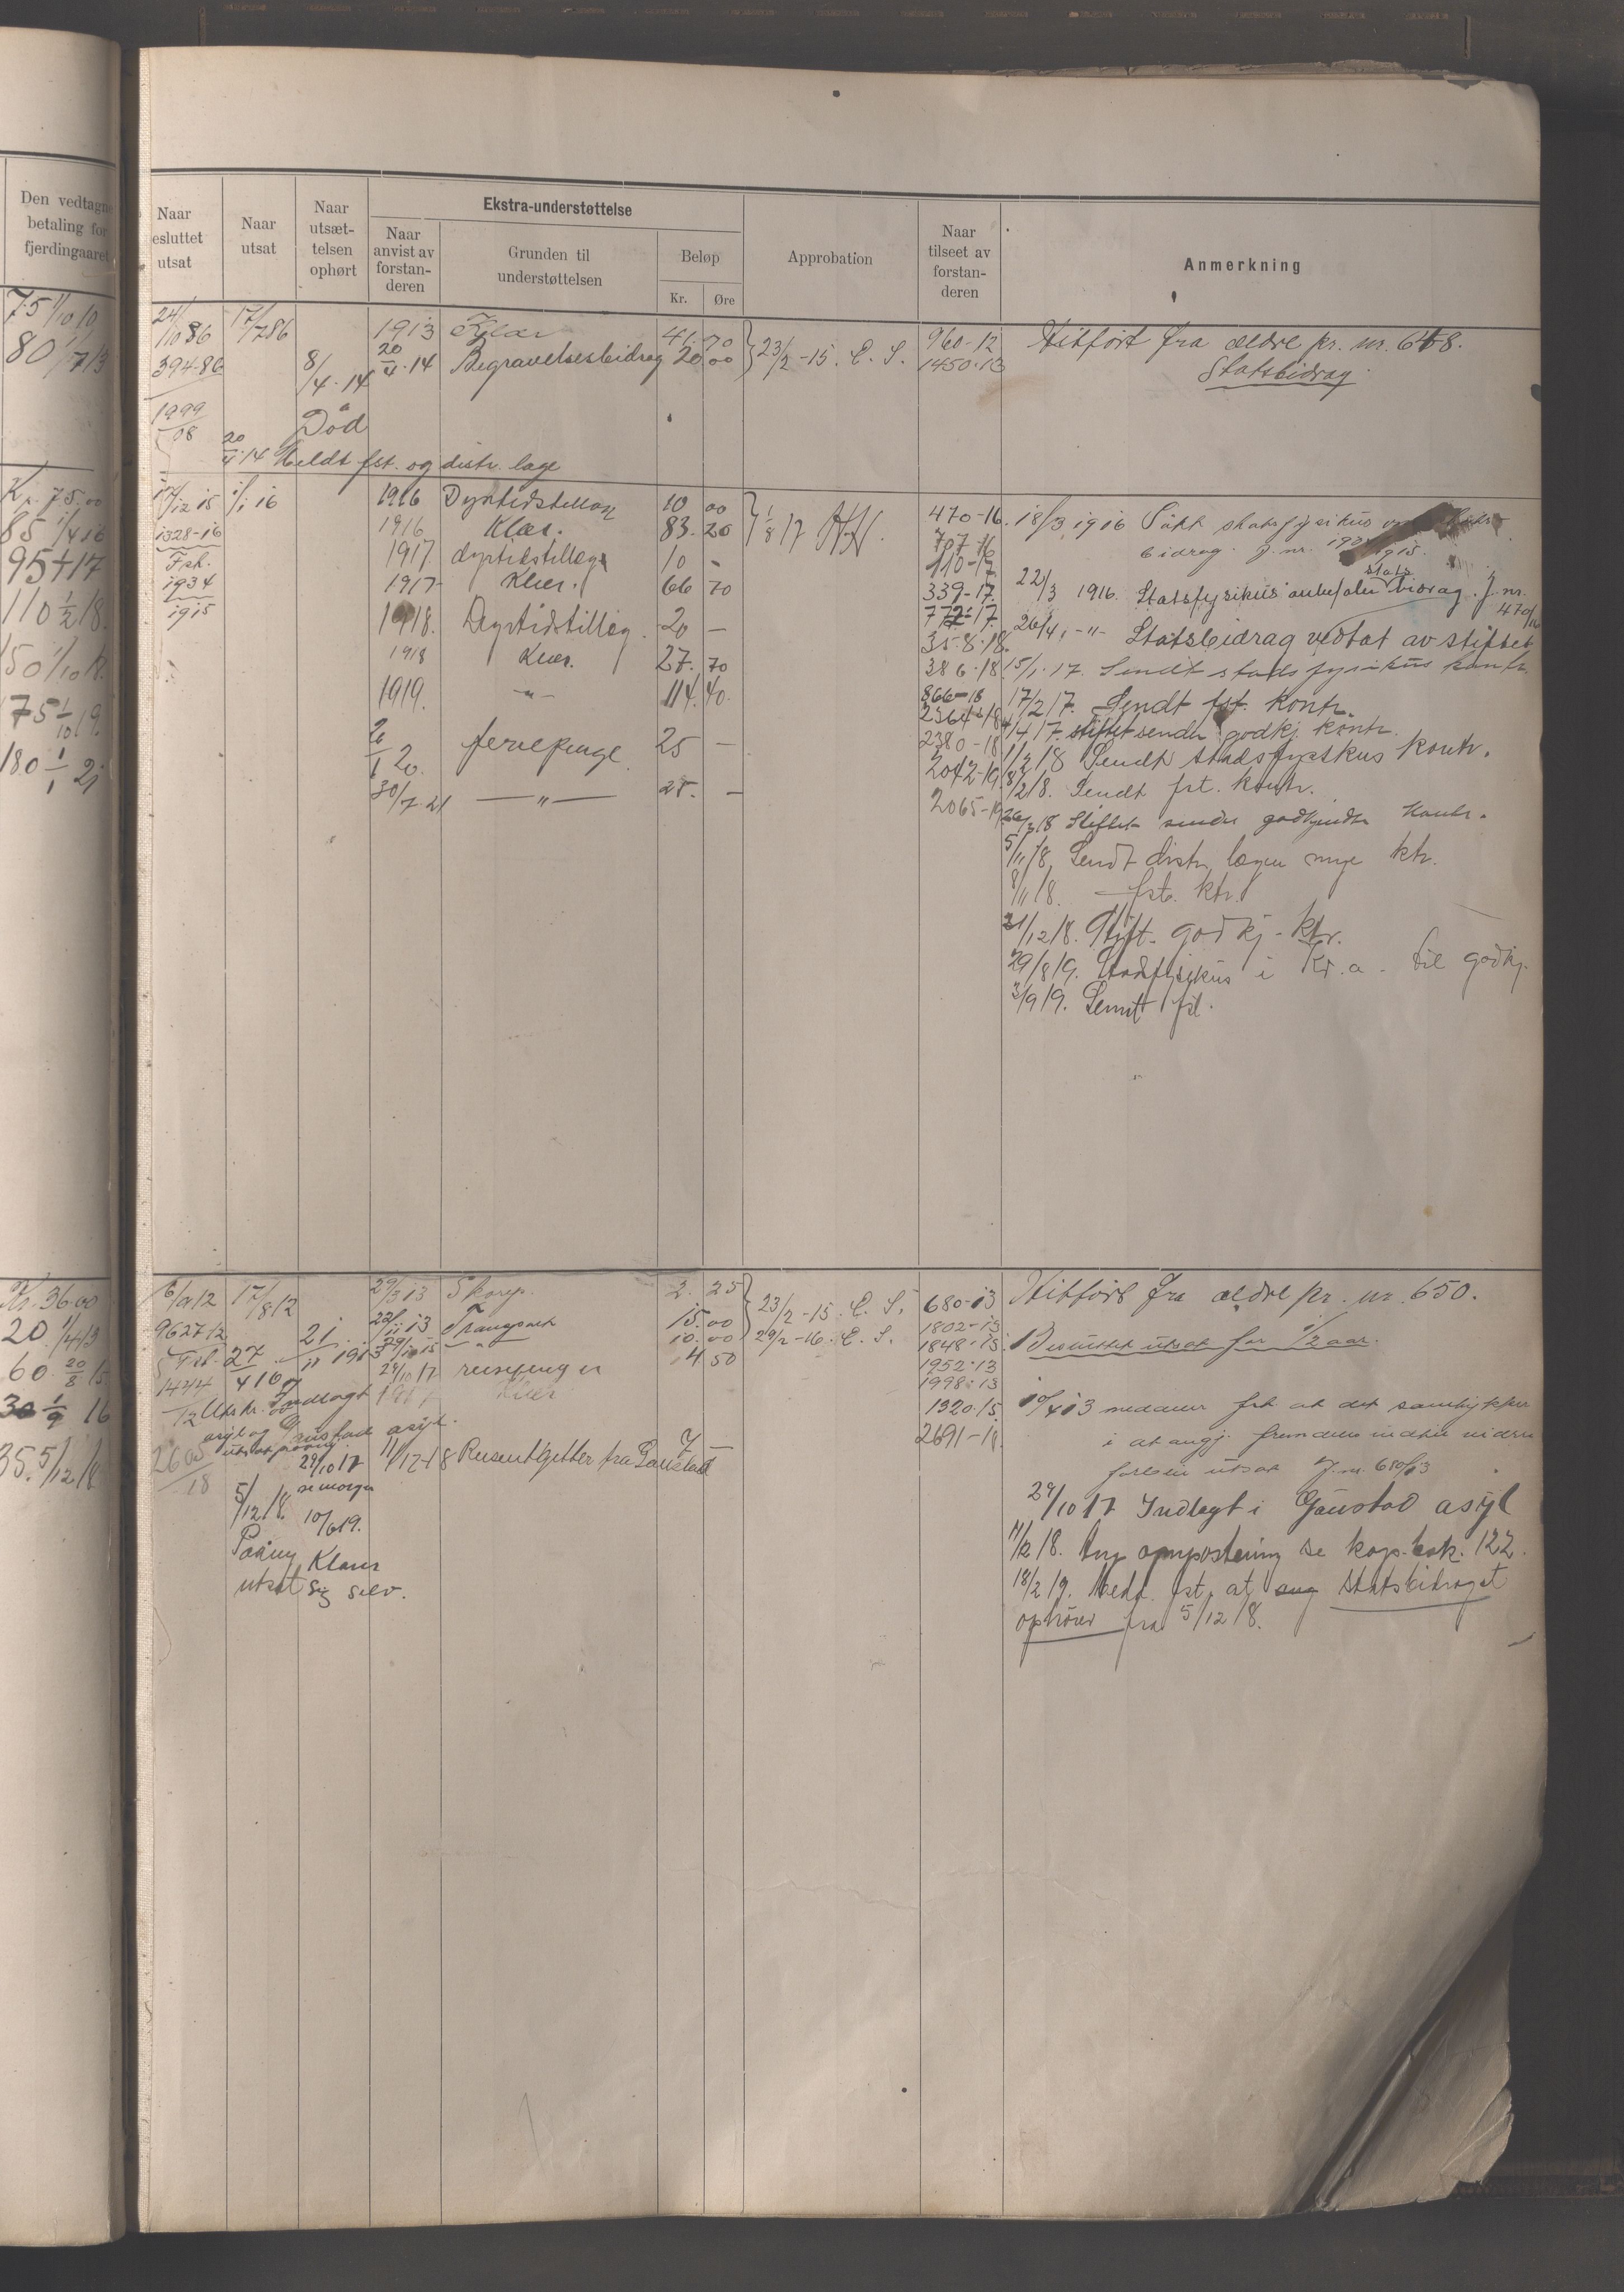 Den vedtagne
betaling for
fjerdingaaret
75 1/10 10
80 1/7 13
Kr. 75.00
85 1/4 16
95 17
110 1/2 18.
150 1/10 18.
175 1/10 19.
180 1/1 21
Kr. 36.00
20. 1/4 13
60. 20/8 15
30 1/9 16
35. 5/12 18
Naar
esluttet
utsat
Naar
utsat
Naar
utsæt-
telsen
ophørt
Ekstra-understøttelse
Naar
anvist av
forstan-
deren
Grunden til
understøttelsen
Beløp
Kr.
Øre
Approbation
Naar
tilseet av
forstan-
deren
Anmerkning
24/10 86 17/7 86 1913 Klær 41.70 23/2-15. E. S. 960-12 Hitført fra ældre pr. nr. 648.
394.86 8/4.14 20/4.14 Begravelsesbidrag 20.00 1450.13 Statsbidrag.
1999/08 Død
20/4.14 Meldt fst. og distr. læge
17/12 15 1/1 16 1916 Dyrtidstillæg 10 00 1/8 17 470-16. 18/3 1916
1328-16 1916 Klær. 83.20 707-16 bidrag. J. nr.
Fsk. 1917. dyrtidstillæg 10 - 110-17
1934 1917 Klær. 66 70 339-17. 22/3 1916. Statsfysikus anbefaler stats bidrag. J. nr. 470/16
1915 1918. Dyrtidstillæg. 20 — 772-17. 26/4, -"- Statsbidrag vedtat av stiftet
1918 Klær. 27. 70 358.18. 15/1.17. Sendt stadsfysikus kontr.
1919. -"- 114.40. 386.18
866-18 17/2 17. Sendt fst. Kontr.
2364-18 4/4 17. stiftet sender godkj. kontr.
20/1 20. feriepenge 25 — 2380-18 1/2 18 Sendt stadsfysikus kontr.
30/7.21 —"— 25. - 2042-19. 8/2 18. Sendt fst. kontr.
2065-19 26/2 18 Stiftet sender godkjendt kontr.
5/11 18. Sendt distr. lægen nye ktr.
8/11 18. — fst. ktr.
21/12 18. Stift. godkj. ktr.
29/8 19. Stadsfysikus i Kr.a. til godkj.
3/9 19. Sendt fst.
6/9 12 17/8 12 29/3 13 Skorep. 2. 25 23/2-15. E. S. 680-13 Hitført fra ældre pr. nr. 650.
962712 21/11 1913 22/11 13 Transport 15.00 29/2-16. E. S. 1802-13
Fsk. 27/4 16 29/10 15 —"— 10.00 1848.13 Besluttet utsat for 1/2 aar.
1424/12 29/10 17 reisepenger 4 50 1952.13
Utskr. Indlagt Klær 1998.13
Gaustad asyl. 1320.15. 10/4 13 meddeler fst at det samtykker
2605/18 29/10 17 11/12-18 Reiseutgifter fra Gaustad 7 — 2691-18 i at angj. fremdeles indtil videre
forblir utsat J. nr. 680/13
5/12 18. 10/6 19. 29/10 17 Indlagt i Gaustad asyl
Paany Klarer 11/12 18. Ang ompostering se kop.bok. 122.
utsat sig selv. 18/2 19. Medd. fst. at ang statsbidraget
ophører fra 5/12 18.